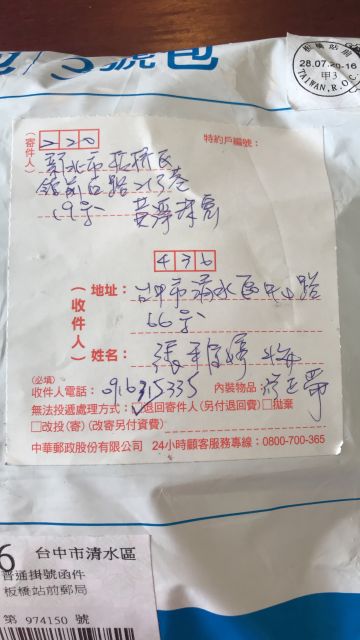 號包
板橋站前
28.07.20-16
甲3
TAIWAN,R.O.C.
(寄件人)
220
特約戶編號：
新北市板橋區
館前西路
19號
436
(收件人)
地址：台中市清水區中山路
66號
姓名：張
(必填)
收件人電話：0916315335 內裝物品：
無法投遞處理方式：☑退回寄件人(另付退回費)□拋棄
□改投(寄)(改寄另付資費)
中華郵政股份有限公司 24小時顧客服務專線：0800-700-365
6 台中市清水區
普通掛號函件
板橋站前郵局
第 974150 號